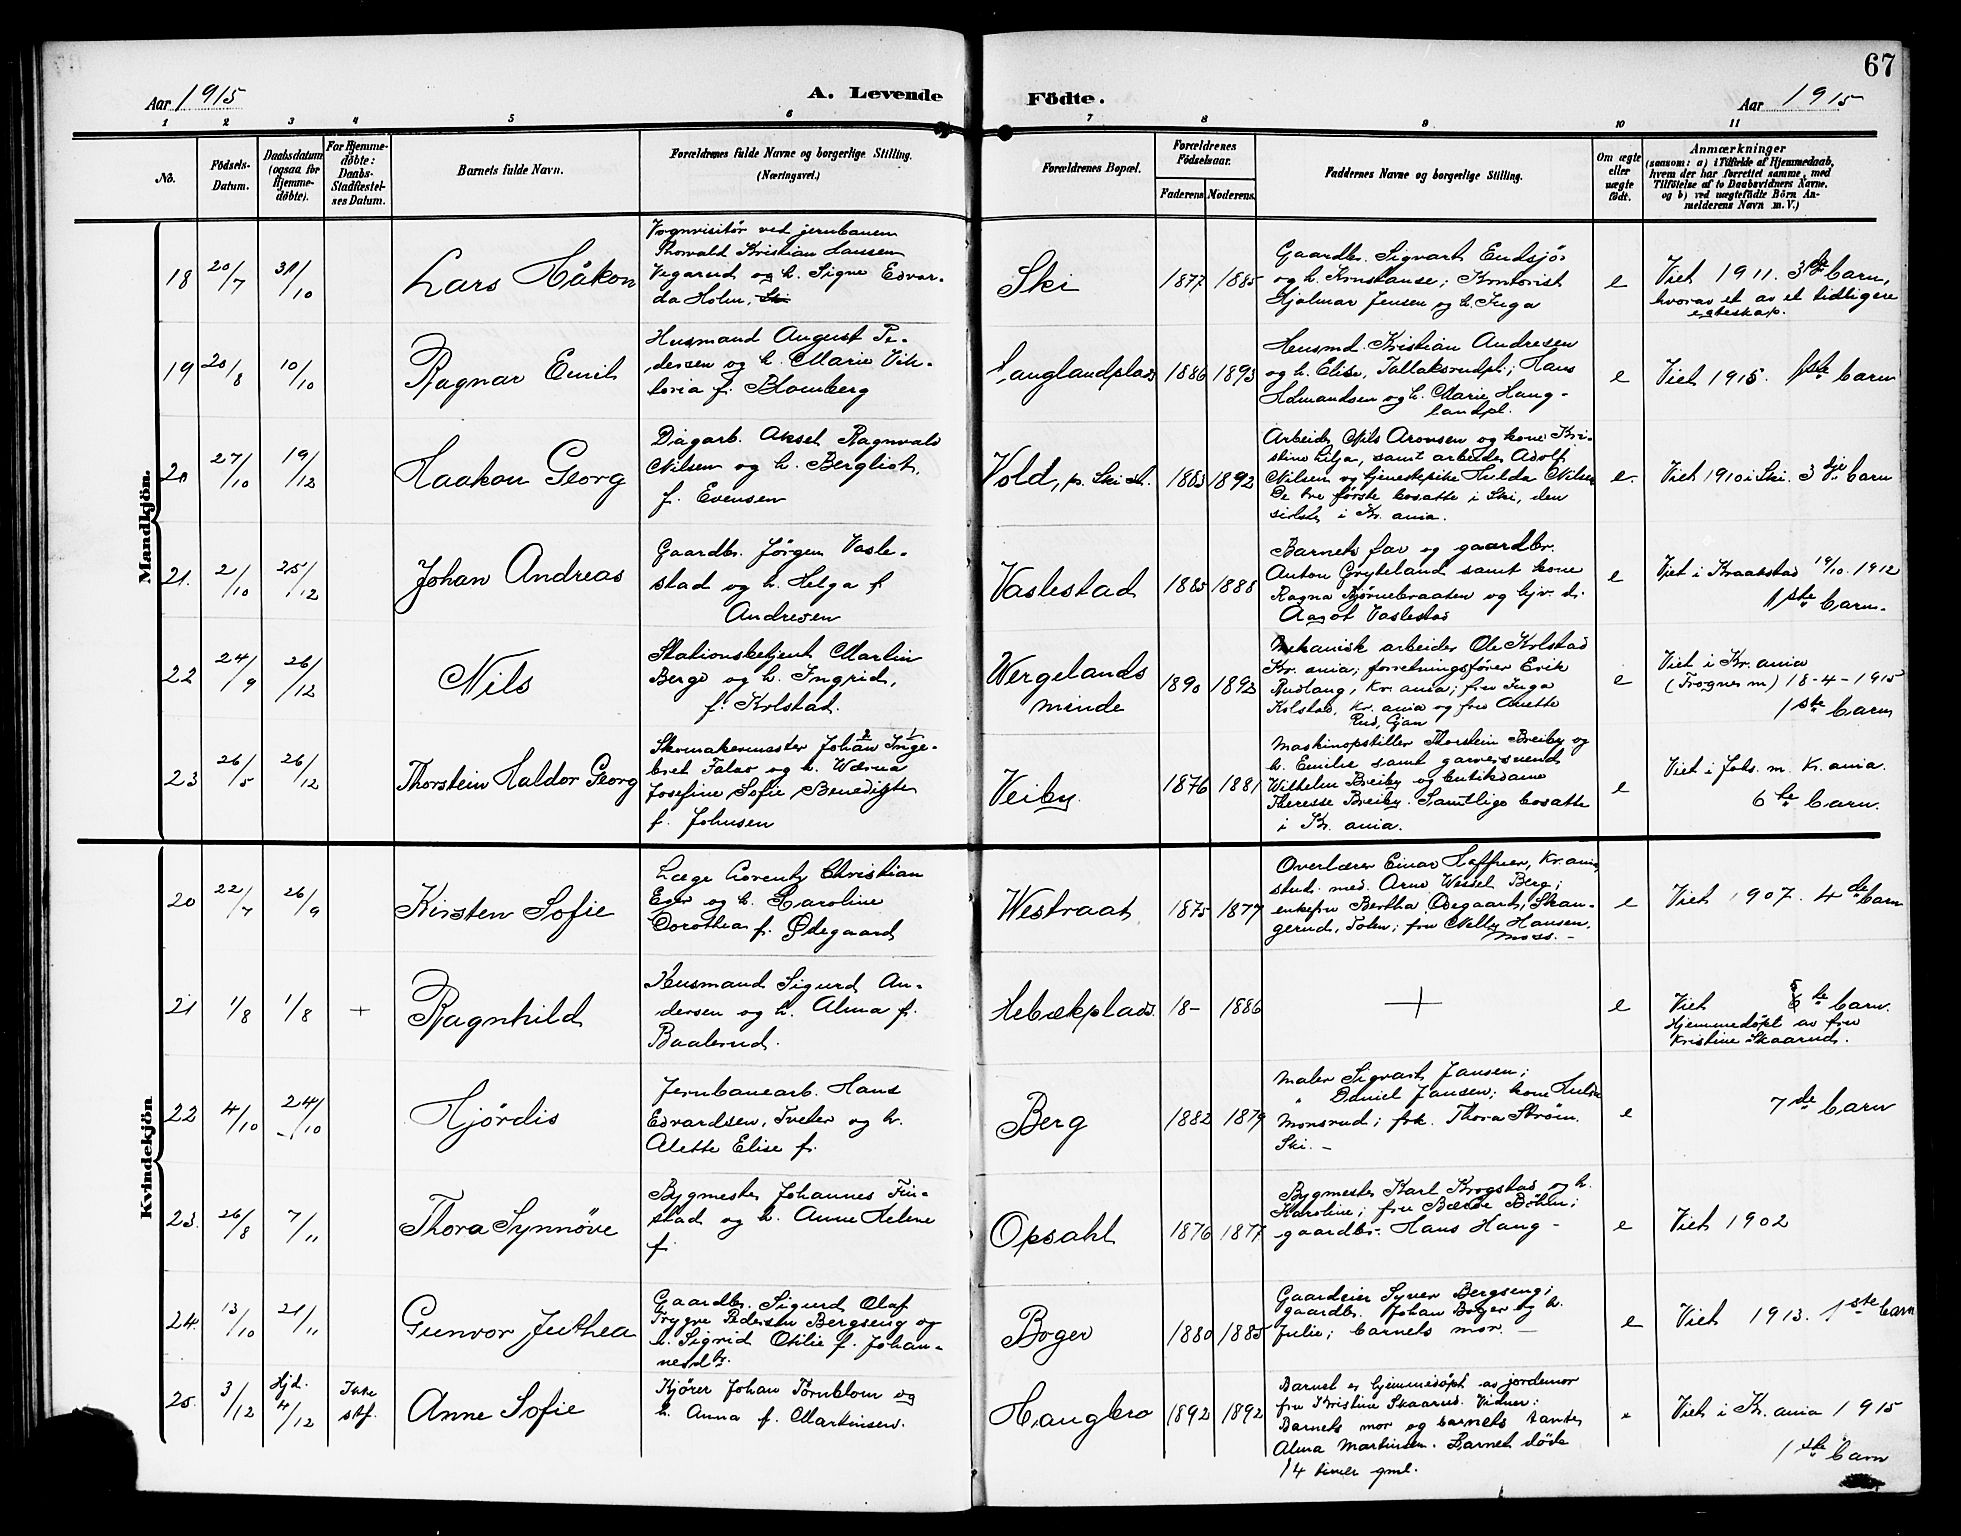 67
Aar 1915
A. Levende
Födte.
Aar 1915
1 2 3 4 5 6 7 8 9 10 11
No.
Födsels-
Datum.
Daabsdatum
(ogsaa for
Hjemme-
døbte).
For Hjemme-
døbte:
Daabs-
Stadfæstel-
ses Datum.
Barnets fulde Navn.
Forældrenes fulde Navne og borgerlige Stilling.
(Næringsvei.)
Forældrenes Bopæl.
Forældrenes
Födselsaar.
Faderens. Moderens.
Faddernes Navne og borgerlige Stilling.
Om ægte
eller
uægte
födt.
Anmærkninger
(saasom: a) i Tilfælde af Hjemmedaab,
hvem der har forrettet samme, med
Tilföielse af to Daabsvidners Navne.
og b) ved uægtefödte Börn An-
melderens Navn m. V.)
Mandkjön.
18
20/7
31/10
Lars Håkon
Vognvisitør ved jernbanen
Thorvald Kristian Hansen
Vegarud og h. Signe Edvar-
da Holm,
Ski
1877
1885
Gaardbr. Sigvart Endsjø
og h. Konstanse; Kontorist
Hjalmar Jensen og h. Inga
e
Viet 1911. 3die barn,
hvorav et av et tidligere
egteskap.
19
20/8
10/10
Ragnar Emil
Husmand August Pe-
dersen og h. Marie Vik-
toria f. Blomberg
Langlandplads
1886
1893
Husmd. Kristian Andresen
og h. Elise, Tallaksrudpl; Hans
Admandsen og h. Marie Haug-
landpl.
e
Viet 1915. 1ste barn
20
27/10
19/12
Haakon Georg
Dagarb. Aksel Ragnvald
Nilsen og h. Bergliot,
f. Evensen
Vold, p. Ski st.
1883
1892
Arbeider Nils Aronsen og kone Kri-
stine Lilja, samt arbeider Adolf
Nilsen og tjenestepike Hulda Nilsen
De tre første bosatte i Ski, den
sidste i Kr. ania.
e.
Viet 1910 i Ski. 3die barn
21.
2/10
25/12
Johan Andreas
Gaardbr. Jørgen Vasle-
stad og h. Helga f.
Andresen
Vaslestad
1885
1888
Barnets far og gaardbr.
Anton Gryteland samt kone
Ragna Bjørnebraaten og hjv. d.
Aagot Vaslestad
e
Viet i Kraakstad 19/10. 1912
1ste barn.
22
24/9
26/12
Nils
Stationsbetjent Martin
Berge og h. Ingrid,
f. Kolstad.
Wergelands
minde
1890
1892
Mekanisk arbeider Ole Kolstad
Kr. ania; forretningsfører Erik
Rudlang, Kr. ania; fru Inga
Kolstad, Kr. ania og fru Anette
Rud, Gjøn
e
Viet i Kr. ania
(Frogner m) 18-4-1915
1ste barn
23
26/5
26/12
Thorstein Haldor Georg
Skomakermester Johan Inge-
bret Falao og h. Wærna
Josefine Sofie Benedigte
f. Johnsen
Veiby.
1876
1881
Maskinopstiller Thorstein Breiby og
h. Emilie samt garversvend
Wilhelm Breiby og butikdame
Theresse Breiby. Samtlige bosatte
i Kr. ania.
e
Viet i Joh. m. Kr. ania.
6te barn.
Kvindekjön
20
22/7
26/9
Kirsten Sofie
Læge Lorentz Christian
Eger og h. Caroline
Dorothea f. Ødegaard
Westraat
1875
1877
Overlærer Einar Høffner, Kr. ania
stud. med. Arne Wessel Berg;
enkefru Bertha Ødegaard, Skan-
gerud, Toten; fru Nelly Hansen.
Moss. -
e
Viet 1907. 4de barn
21
1/8
1/8
+
Ragnhild
Husmand Sigurd An-
dersen og h. Alma f.
Baalerud.
Hebækplads.
18-
1886
+
e
Viet 6te barn.
Hjemmedøpt av fru
Kristine Skaarud.
22
4/10
24/10
Hjördis
Jernbanearb. Hans
Edvardsen, Tveter og h.
Alette Elise f.
Berg
1882
1879
Maler Sigvart Jansen;
" Daniel Jansen; kone Hulda
Monsrud; frk. Thora Strøm.
Ski. -
e
7de barn
23.
26/8
7/11
Thora Synnöve
Bygmester Johannes Fin-
stad og h. Anne Helene
f.
Opsahl
1876
1877
Bygmester Karl Krogstad og h.
Karoline; fru Bærde Böhlm;
gaardbr. Hans Haug -
e
Viet 1902
24.
13/10
21/11
Gunvor Juthea
Gaardbr. Sigurd Olaf
Trygve Pedersen Bergseng og
h. Sigrid Otilie f. Johan-
nesdtr.
Boger
1880
1885
Gaardeier Syver Bergseng;
gaardbr. Johan Boger og h.
Julie; barnets mor. -
e
Viet 1913. 1ste barn
25.
3/12
Hjd.
4/12
Ikke
stf.
Anne Sofie
Kjører Johan Törnblom og
h. Anna f. Martinsen.
Haugbro
1892
1892
Barnet er hjemmedöpt av jordemor
fru Kristine Skaarud. Vidner:
Barnets mor og barnets tante
Alma Martinsen. Barnet döde
14 timer gml.
e
Viet i Kr. ania 1915
1ste barn